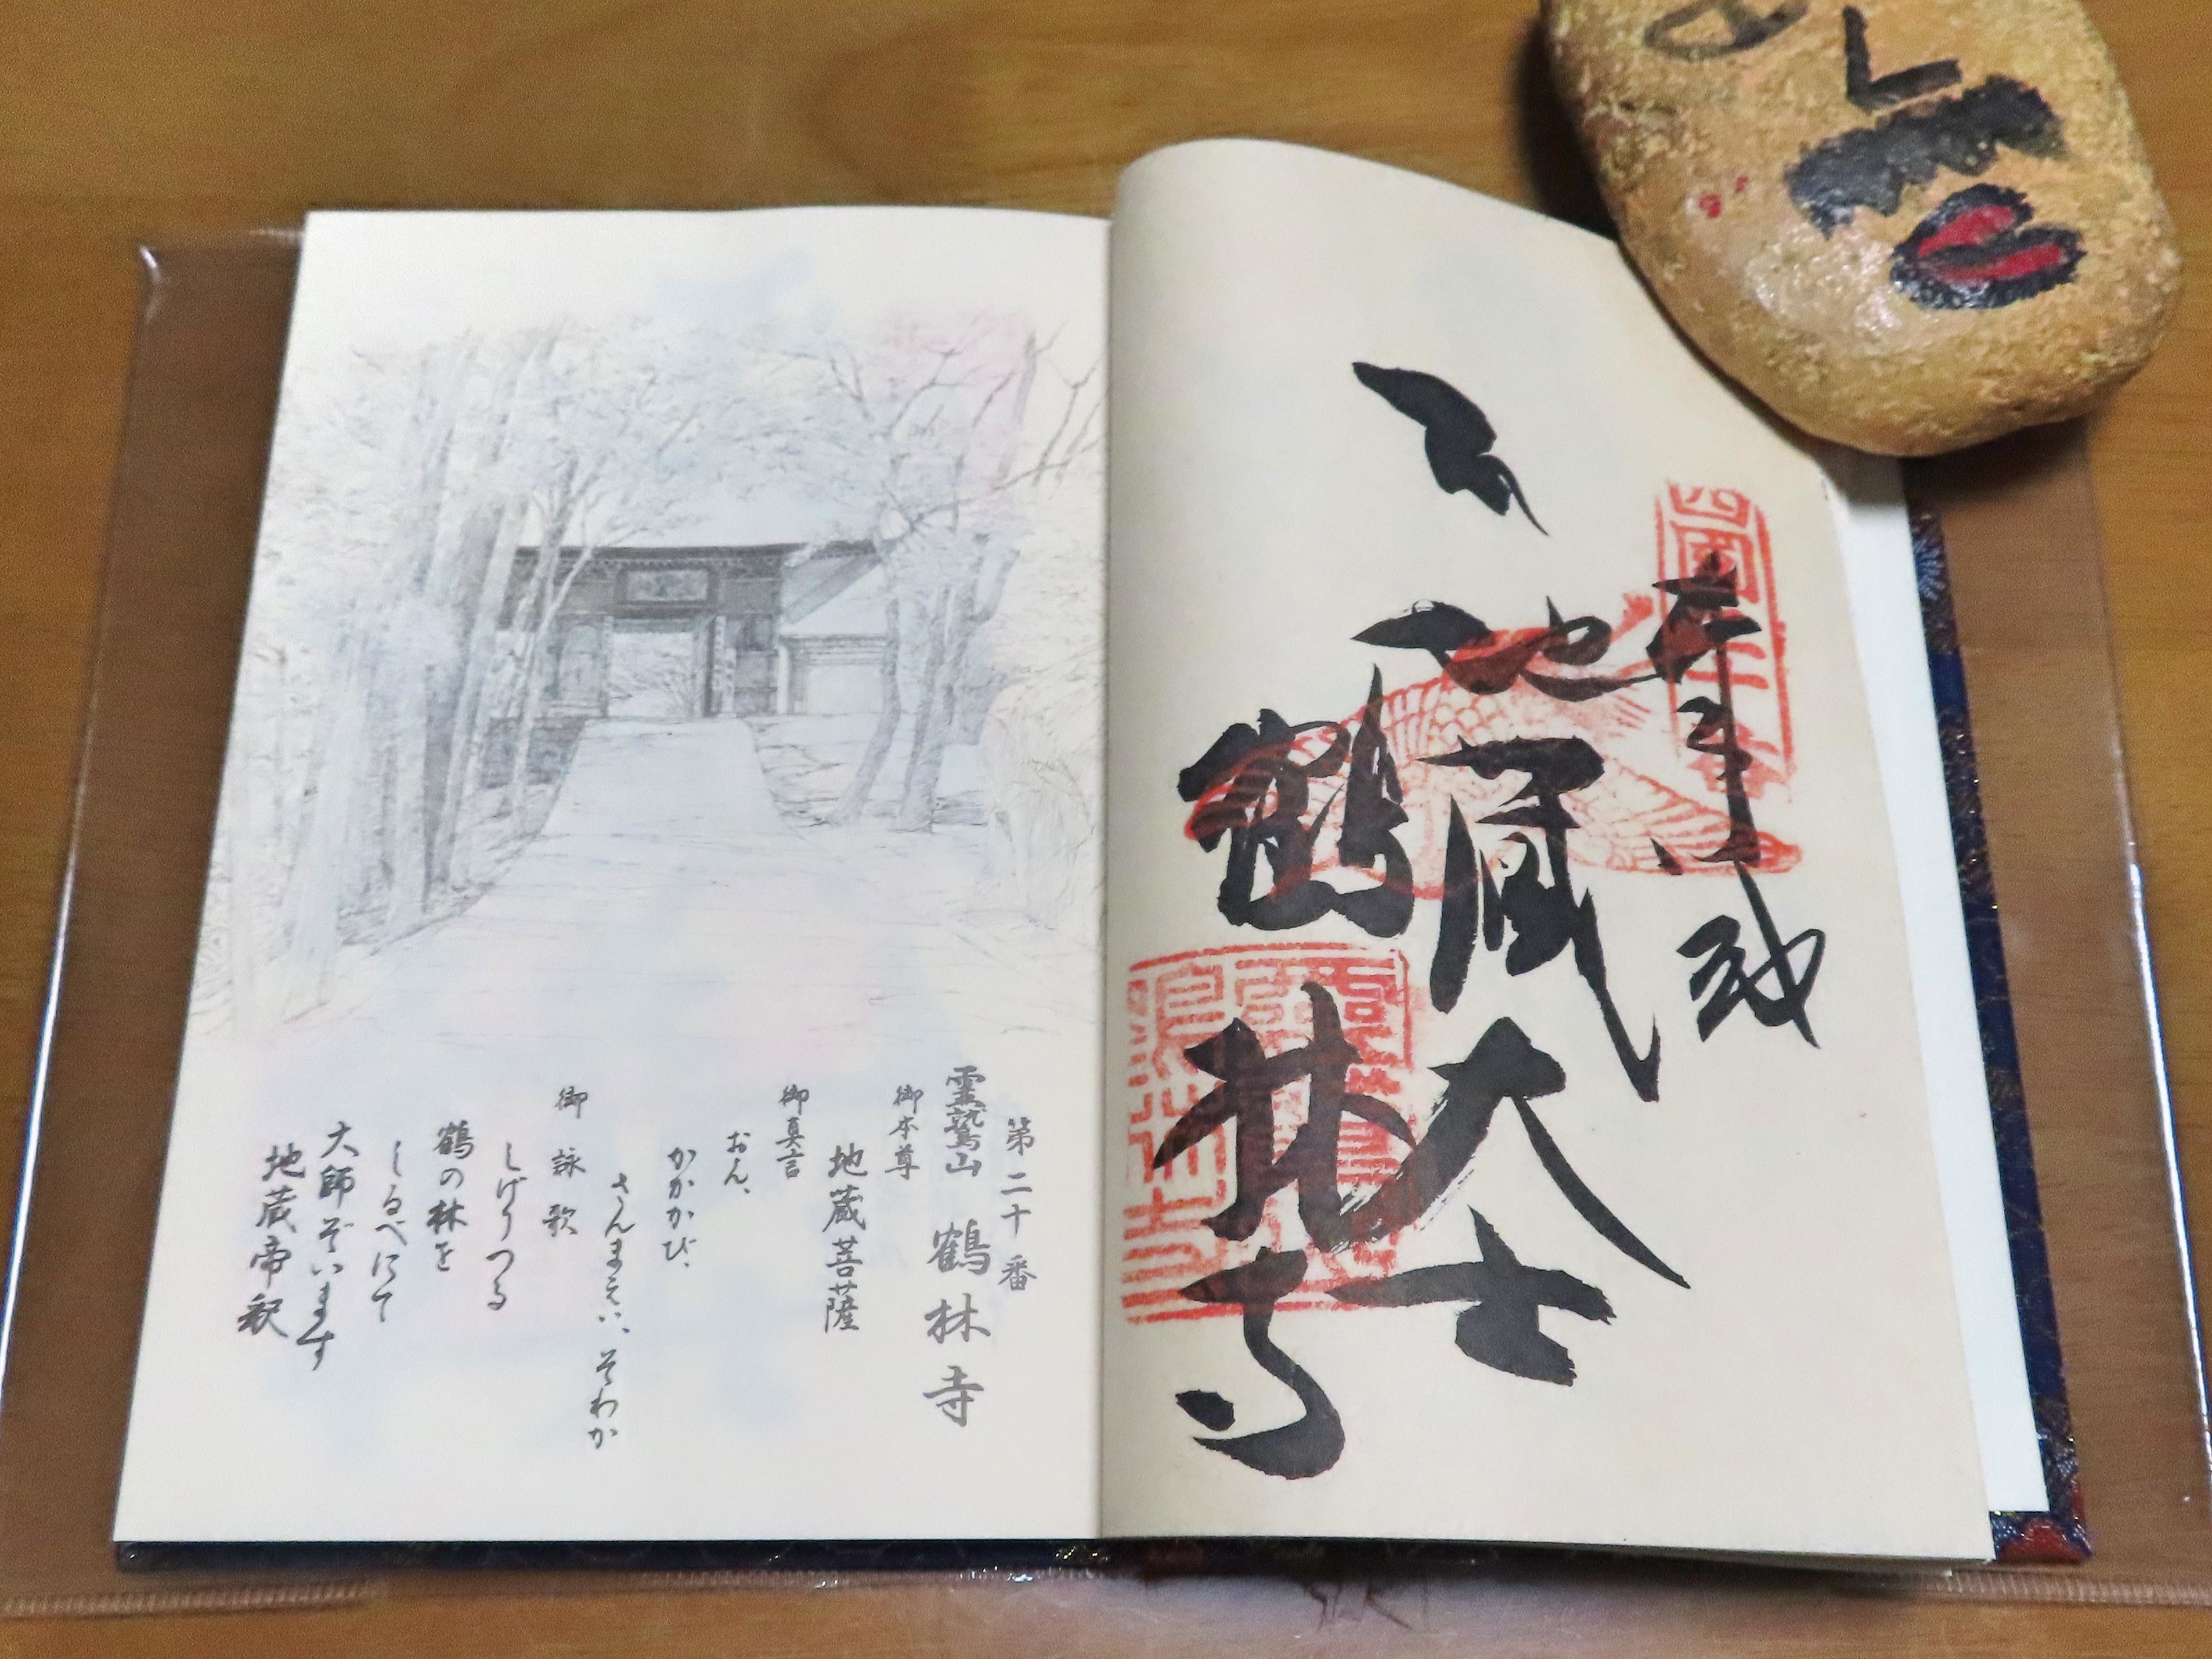 四国二十番
地蔵大士
鶴林寺
第二十番
霊鷲山 鶴林寺
御本尊
地蔵菩薩
御真言
おん、
かかかび、
さんまえい、そわか
御詠歌
しげりつる
鶴の林を
しるべにて
大師ぞいます
地蔵帝釈